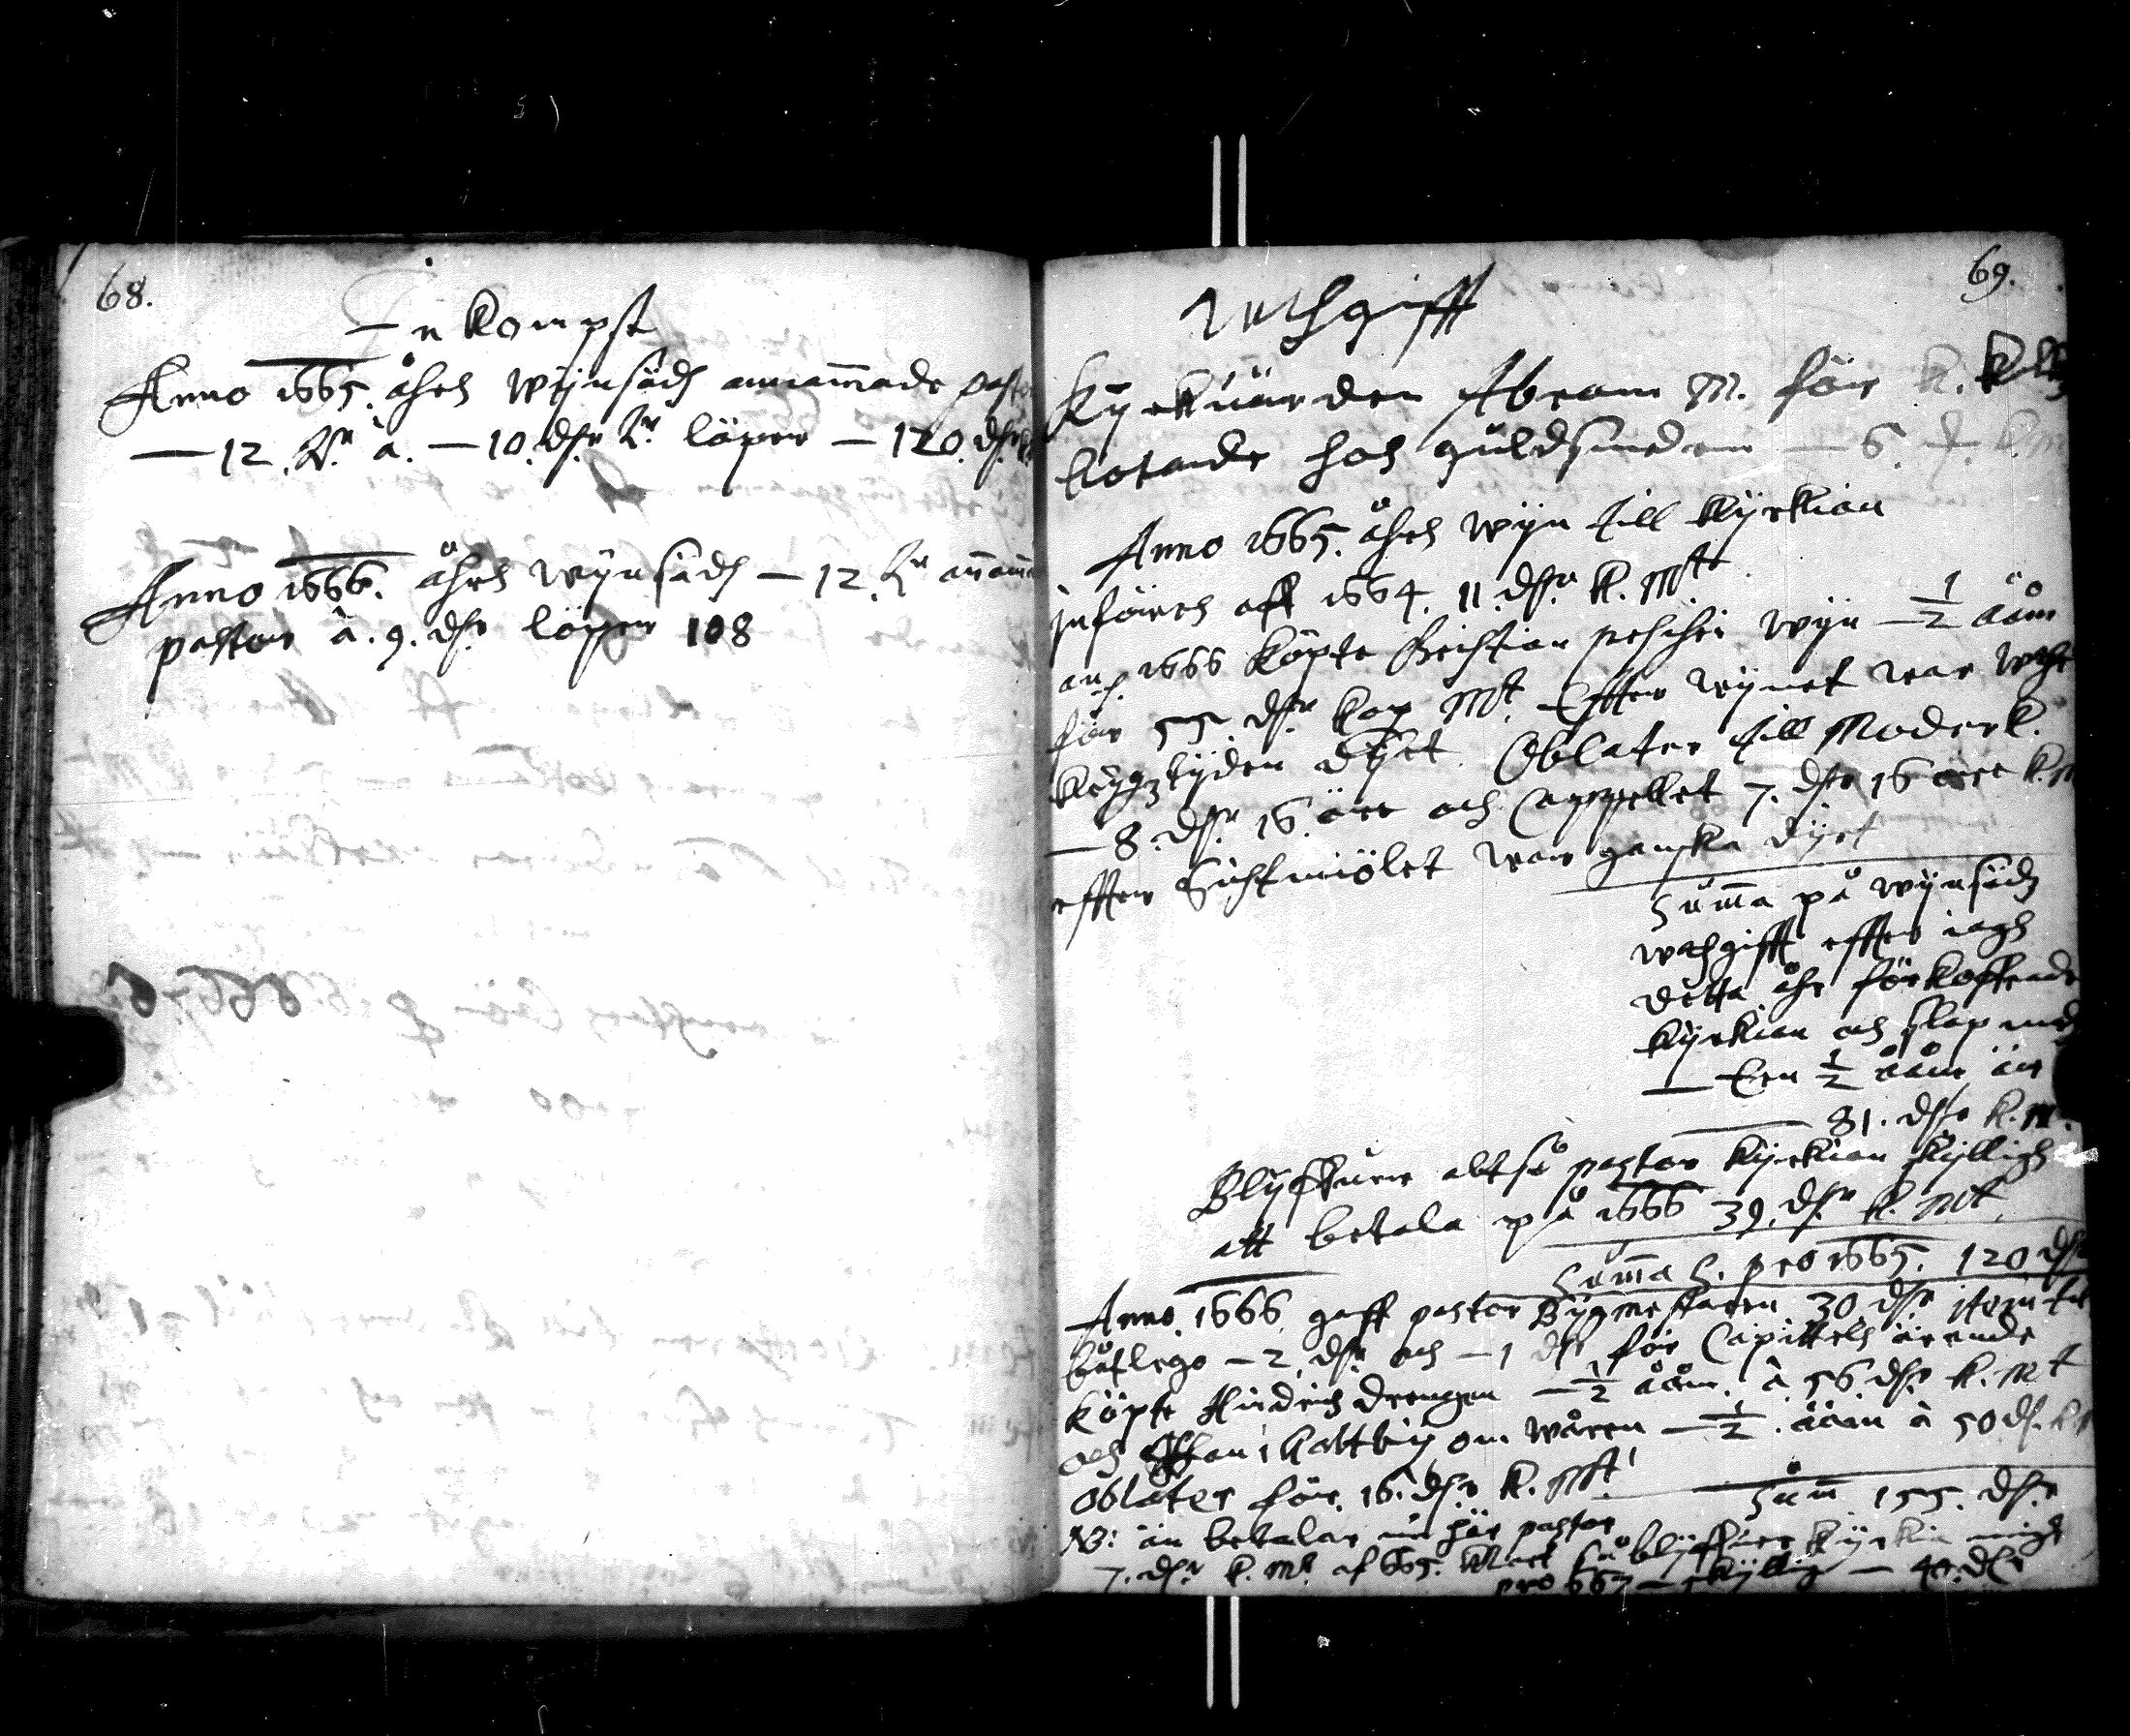 68.
Inkompst
Anno 1665. åhrs wijnsädh annammade pasto
— 12. Tr. à. — 10. dlr. Tr. löper — 120. dlr
Anno 1666. åhrs wijnsädh — 12. Tr annam
pastor à. 9. dlr löper 108
69.
Uthgifft
Kyrkiüärden Abram M. för K.
botande hos guldsmeden — 6. d.
Anno 1665. åhrs wijn till kyrkian
införes aff 1664. 11. dlr K. Mt
1666 köpte Christian wijn — 1/2 ååm
för 55. dlr kop Mt. Effter wijnet war
krigztijden dyrt. Oblater till Moderk.
— 8. dlr. 16. öre och Cappellet 7. dlr 16 öre k. m
effter Sichtmiölet war ganska dyrt
Summa på wijnsädz
uthgifft effter iagh
detta åhr förskoffade
kyrkian och slap medh
— Een 1/2 ååm är
— 81. dlr k. m.
Blijffuer altså pastor kyrkian skylligh
att betala på 1666 39. dlr k. Mt.
Summa S. pro 1665. 120 dlr
Anno. 1666 gaff pastor Bygmestaren 30 dlr item til
båtlego — 2. dlr och — 1 dlr för Capittels ärende
köpte Hindrich drengen — 1/2 ååm. à 56. dlr k. Mt
och Staffan i Kaltby om wåren — 1/2. ååm à 50 dl. k
oblåter för. 16. dlr k. Mt.
Summ 155. dlr
NB: än betalar min här pastor
7. dlr k. Mt af 665. så blijffuer kyrkia migh
pro 667 — skyllig — 40. dlr